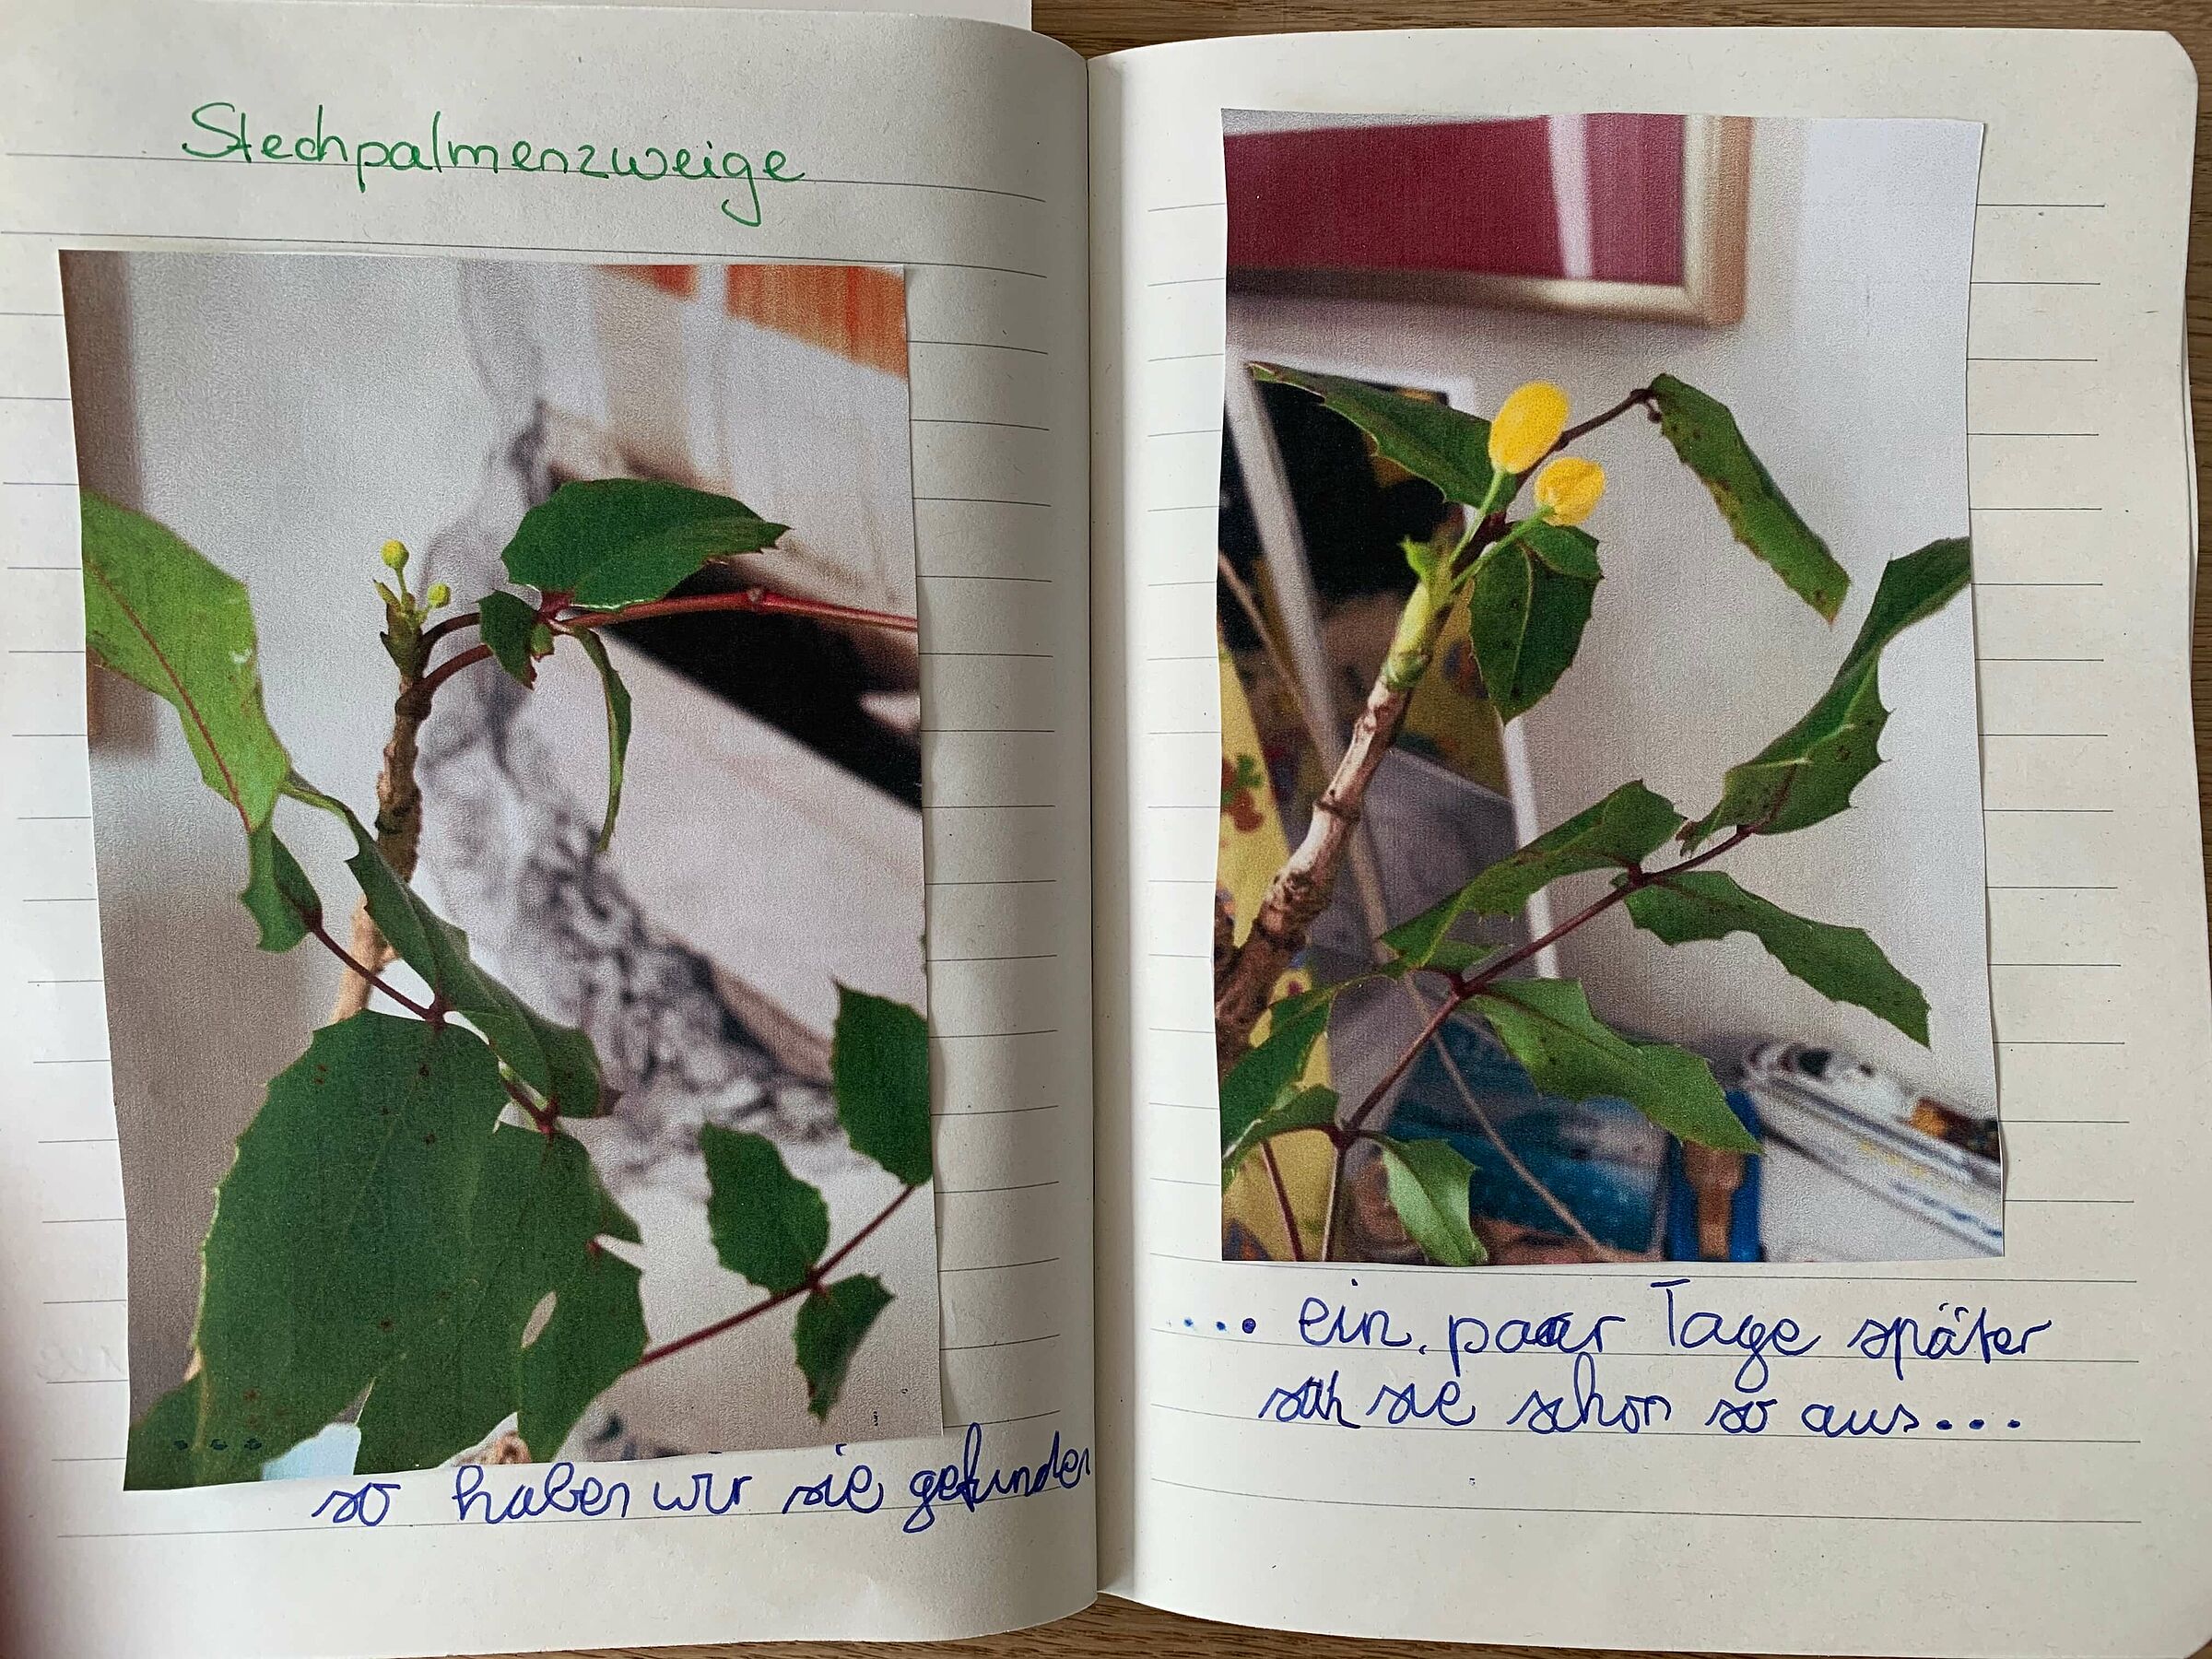 Stechpalmenzweige
...
so haben wir sie gefunden
.... ein paar Tage später
sah sie schon so aus...